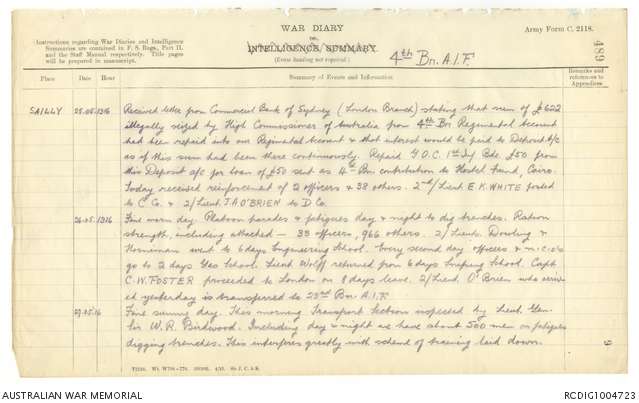 Instructions regarding War Diaries and Intelligence
Summaries are contained in F. S. Regs., Part II.
and the Staff Manual respectively. Title pages
will be prepared in manuscript.
WAR DIARY
or
INTELLIGENCE SUMMARY.
(Erase heading not required)
4th Bn. A.I.F.
Army Form C. 2118.
489
Place
Date
Hour
Summary of Events and Information
Remarks and
references to
Appendices
SAILLY 25.05.1916 Received letter from Commercial Bank of Sydney (London Branch) stating that sum of £622
illegally seized by High Commissioner of Australia from 4th Bn Regimental Account
had been repaid into our Regimental Account & that interest would be paid to Deposit a/c
as if this sum had been there continuously. Repaid G.O.C. 1st Inf Bde. £50 from
this Deposit a/c for loan of £50 sent as 4th Bn contribution to Hostel Fund, Cairo.
Today received reinforcement of 2 officers & 38 others. 2nd/Lieut E.K. WHITE posted
to C Co. & 2/Lieut J.A O'BRIEN to D Co.
26.05.1916 Fine warm day. Platoon parades & fatigues day & night to dig trenches. Ration
strength, including attached — 33 officers, 966 others. 2/Lieuts. Dowling &
Horniman went to 6 days Engineering School. Every second day officers & n.c.o's
go to 2 days Gas School. Lieut Wolff returned from 6 days Sniping School. Capt
C.W. FOSTER proceeded to London on 8 days leave. 2/Lieut. O'Brien who arriv-
ed yesterday is transferred to 23rd Bn. A.I.F.
27.05.16 Fine sunny day. This morning Transport Section inspected by Lieut. Gen.
Sir W. R. Birdwood. Including day & night we have about 500 men on fatigues
digging trenches. This interferes greatly with scheme of training laid down.
9
AUSTRALIAN WAR MEMORIAL
RCDIG1004723